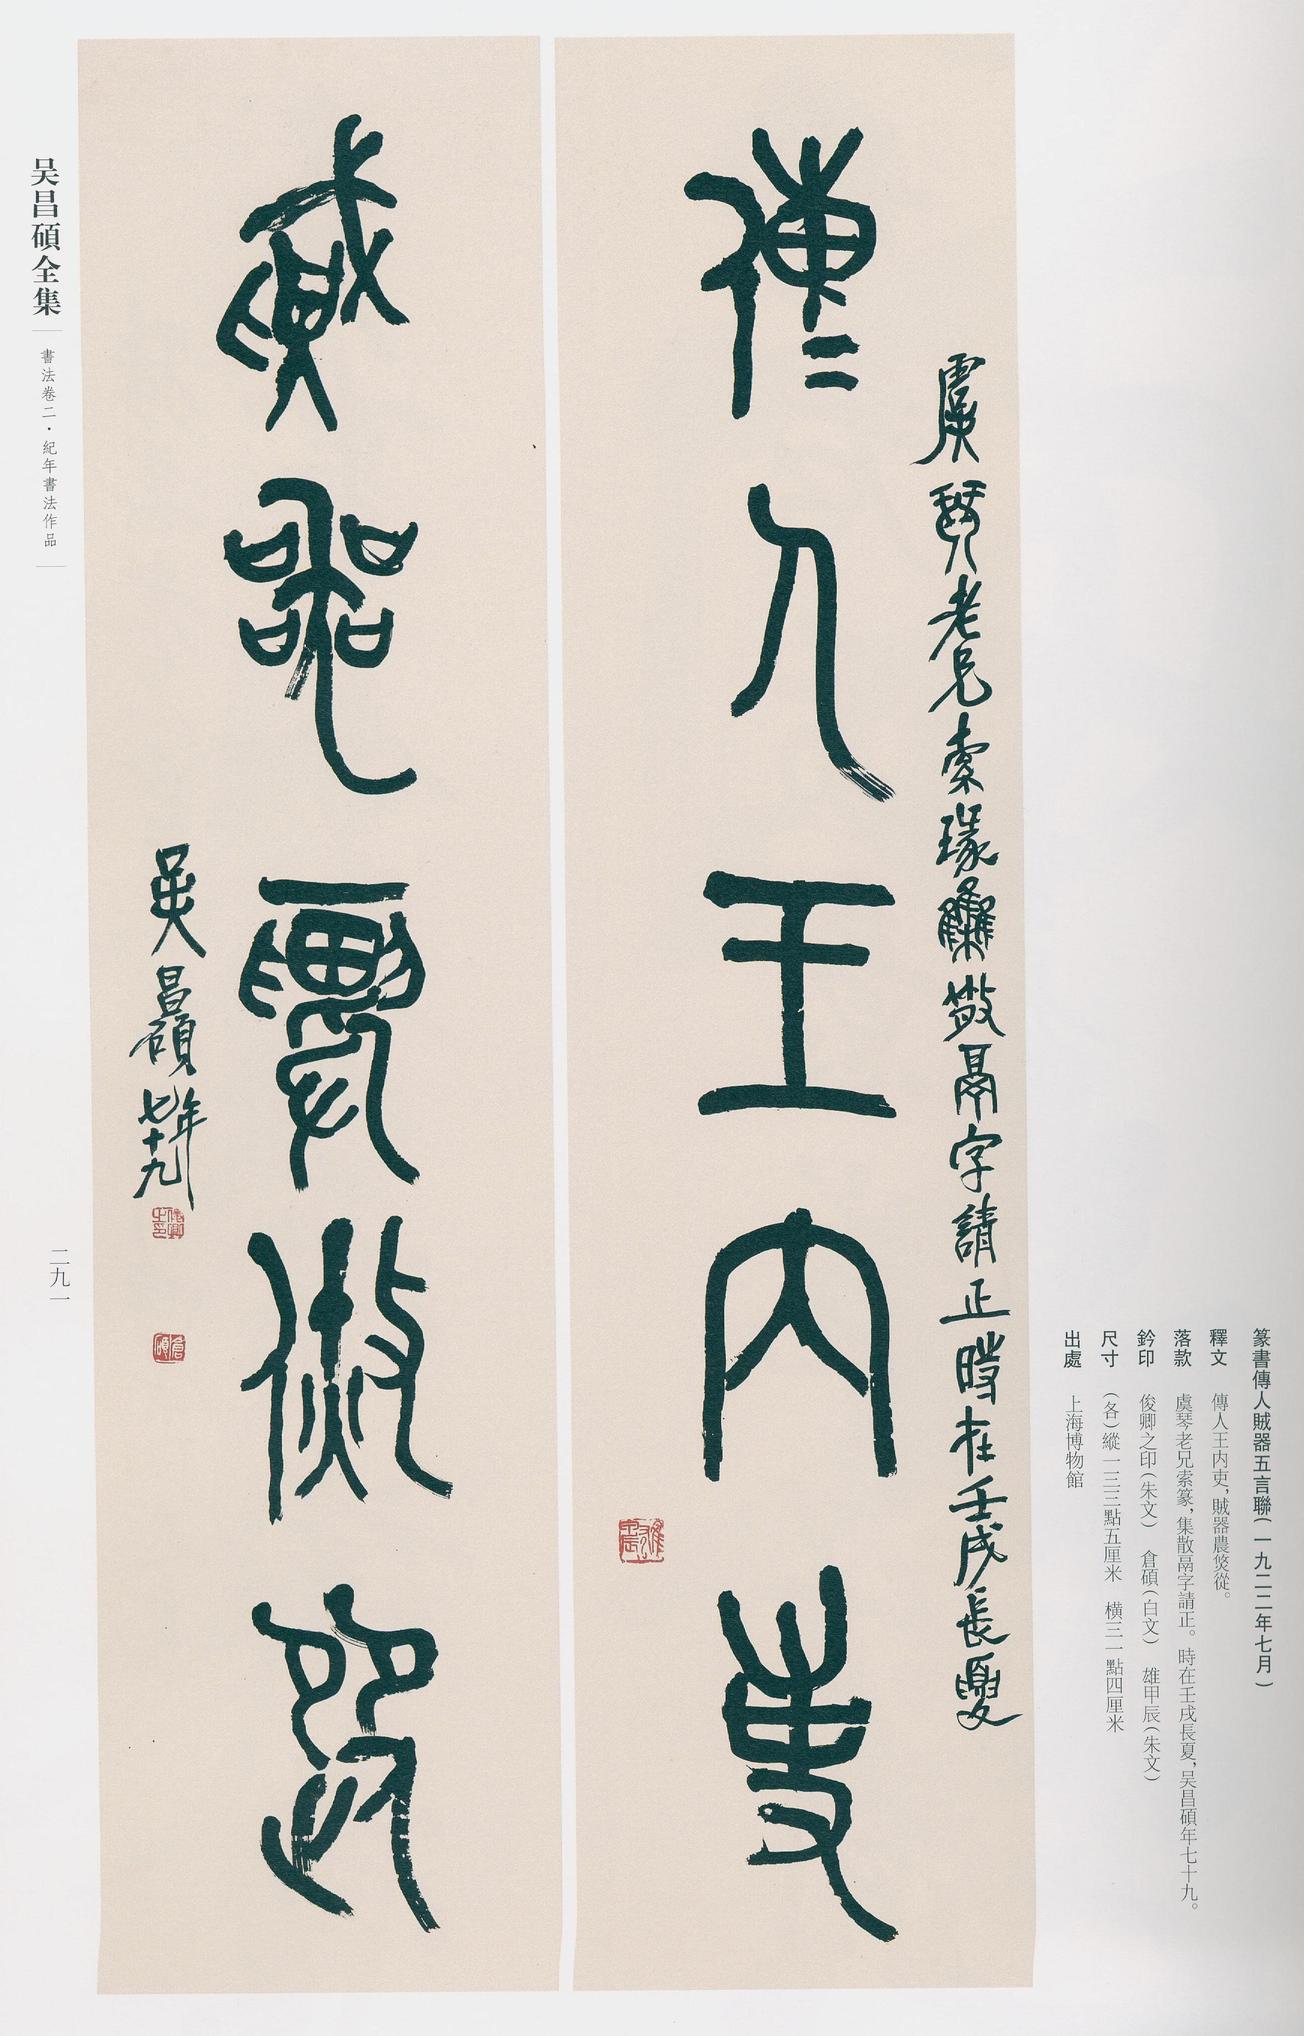 篆書傳人賊器五言聯（一九二二年七月）
釋文　傳人王内吏，賊器農焂從。
落款　虞琴老兄索篆，集散鬲字請正。時在壬戌長夏，吴昌碩年七十九。
鈐印　俊卿之印（朱文）　倉碩（白文）　雄甲辰（朱文）
尺寸　（各）縱一三三點五厘米　橫三一點四厘米
出處　上海博物館
虞琴老兄索瑑集散鬲字請正時在壬戌長夏
傳人王内吏
雄甲辰
賊器農焂從
吴昌碩年七十九
俊卿之印
倉碩
吴昌碩全集
書法卷二・紀年書法作品
二九一